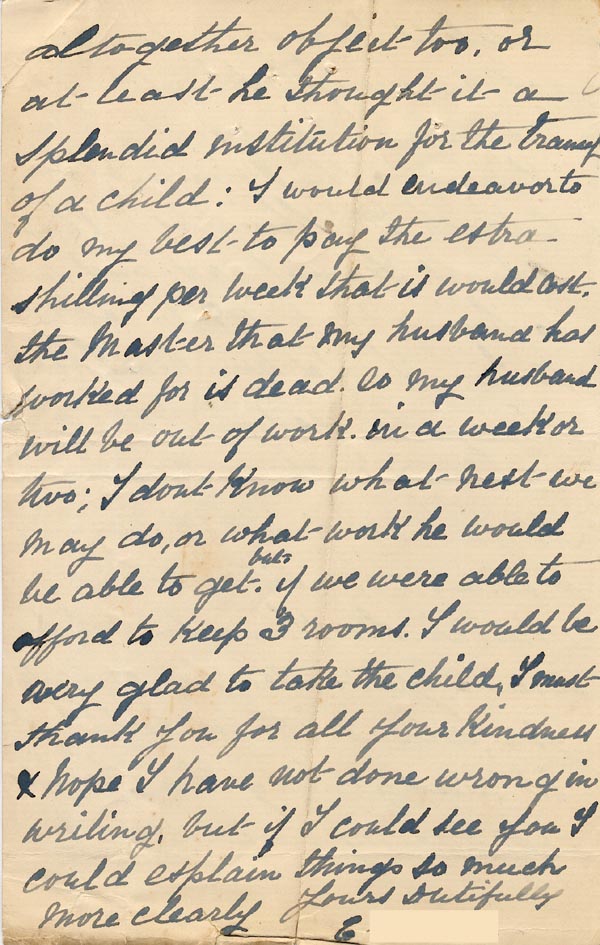 altogether object too, or
at least he thought it a
splendid institution for the traing
of a child: I would endeavor to
do my best to pay the extra
shilling per week that is would cost.
the Master that my husband has
worked for is dead. so my husband
will be out of work. in a week or
two; I dont know what nest we
may do, or what work he would
be able to get. but if we were able to
afford to keep 3 rooms. I would be
very glad to take the child, I must
thank you for all your kindness
& hope I have not done wrong in
writing, but if I could see you I
could explain things so much
more clearly Yours Dutifully
E